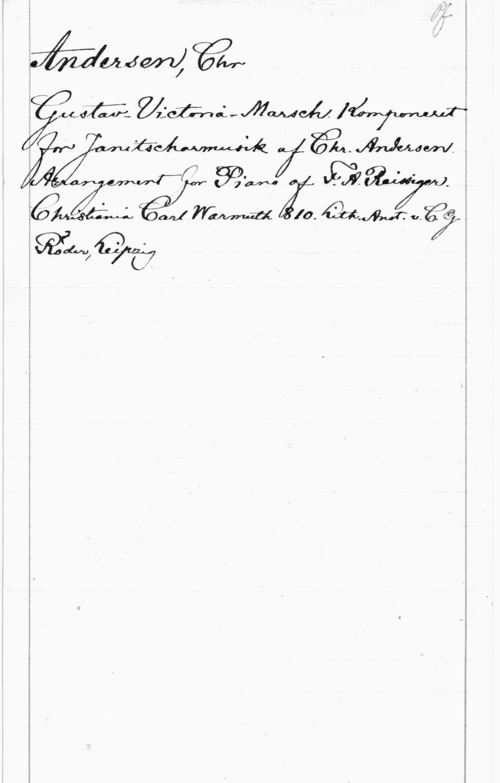 Pf
Andersen, Chr
Gustav-Victoria-Marsch. Komponeret
for Janitscharmusik af Chr. Andersen.
Arrangement for Piano af F. A. Reissiger.
Christiania Carl Warmuth 810. Lith. Anst. v. C G.
Röder, Leipzig